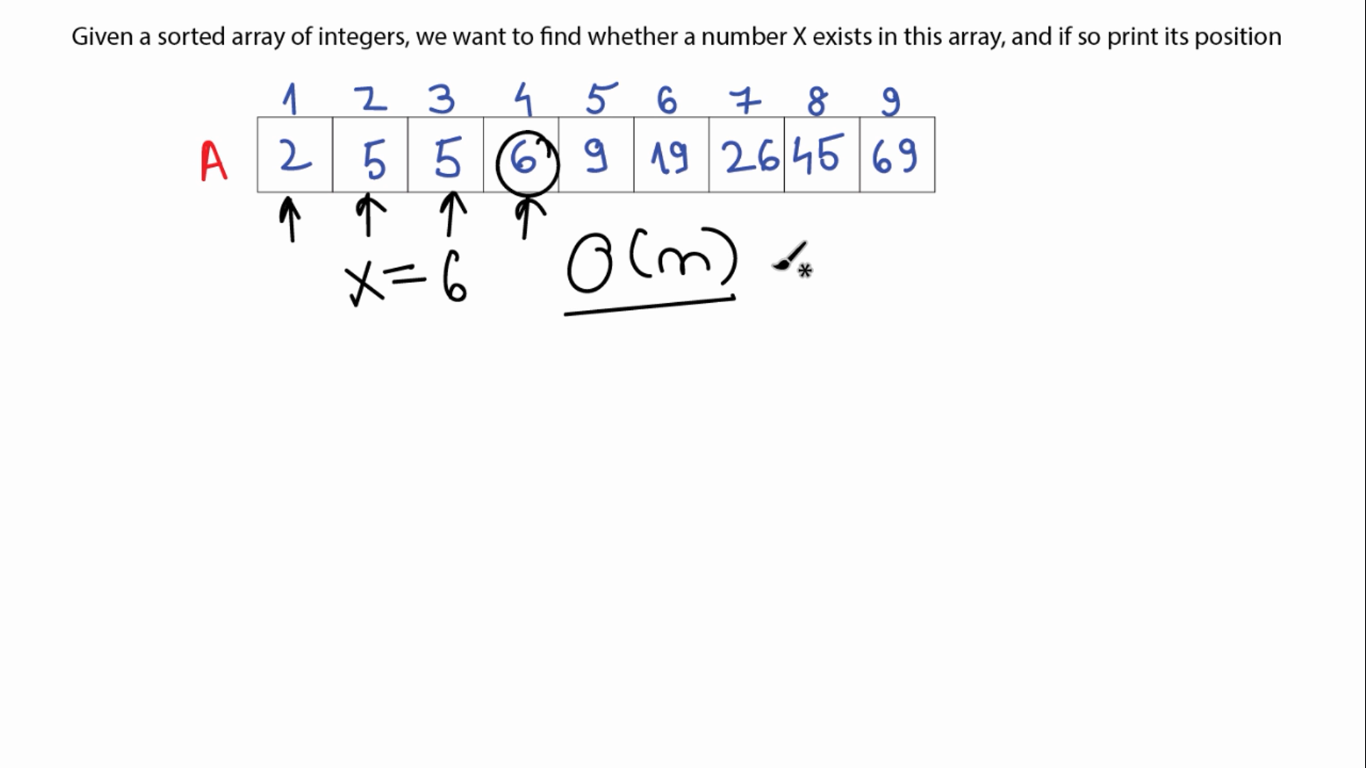 Given a sorted array of integers, we want to find whether a number X exists in this array, and if so print its position
1 2 3 4 5 6 7 8 9
A 2 5 5 6 9 19 26 45 69
x=6 O(n)